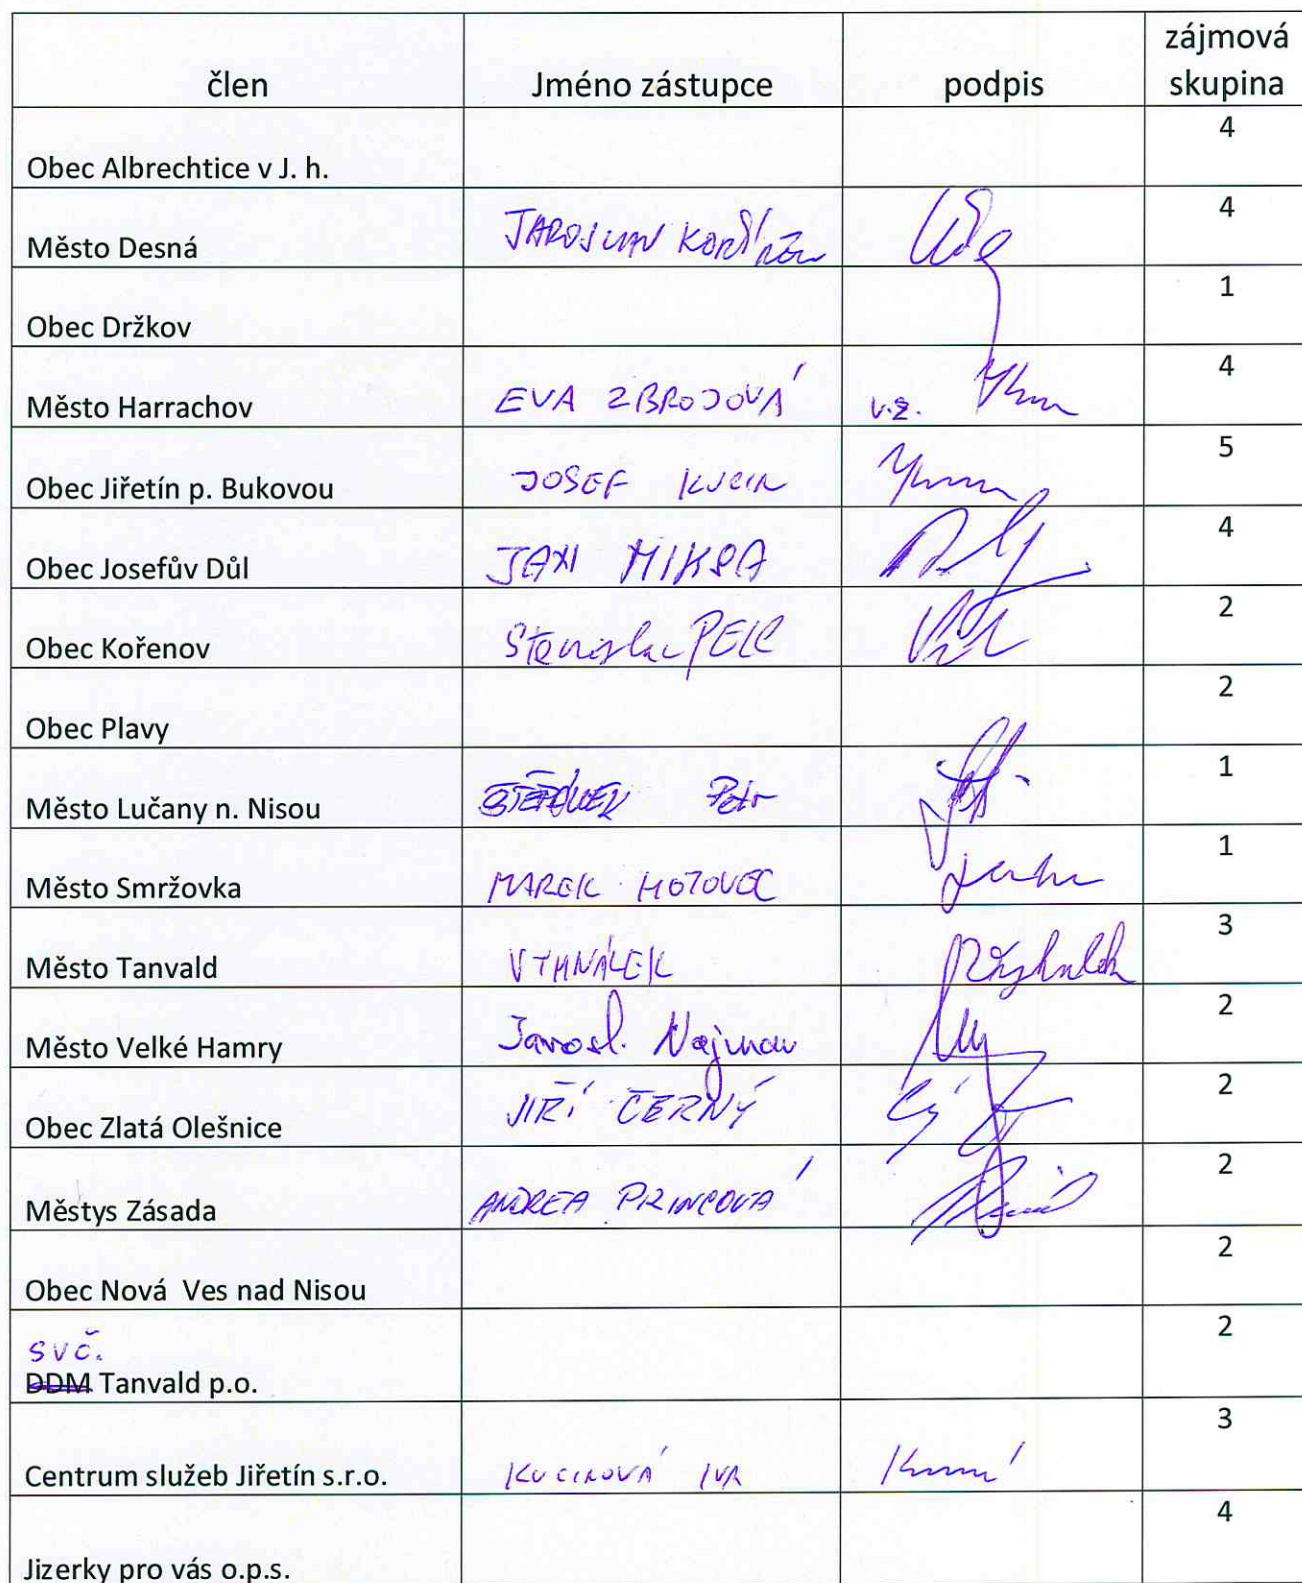 člen Jméno zástupce podpis zájmová skupina
Obec Albrechtice v J. h. 4
Město Desná JAROSLAV 4
Obec Držkov 1
Město Harrachov EVA ZBROJOVÁ v.z. 4
Obec Jiřetín p. Bukovou JOSEF KUCIN 5
Obec Josefův Důl JAN MIKSA 4
Obec Kořenov Stanislav PELC 2
Obec Plavy 2
Město Lučany n. Nisou Petr 1
Město Smržovka MAREK HOTOVEC 1
Město Tanvald VYHNÁLEK Vyhnálek 3
Město Velké Hamry Jarosl. Najman 2
Obec Zlatá Olešnice JIŘÍ ČERNÝ 2
Městys Zásada ANDREA PRINCOVÁ 2
Obec Nová Ves nad Nisou 2
SVČ.
DDM Tanvald p.o. 2
Centrum služeb Jiřetín s.r.o. KUCINOVÁ IVA 3
Jizerky pro vás o.p.s. 4